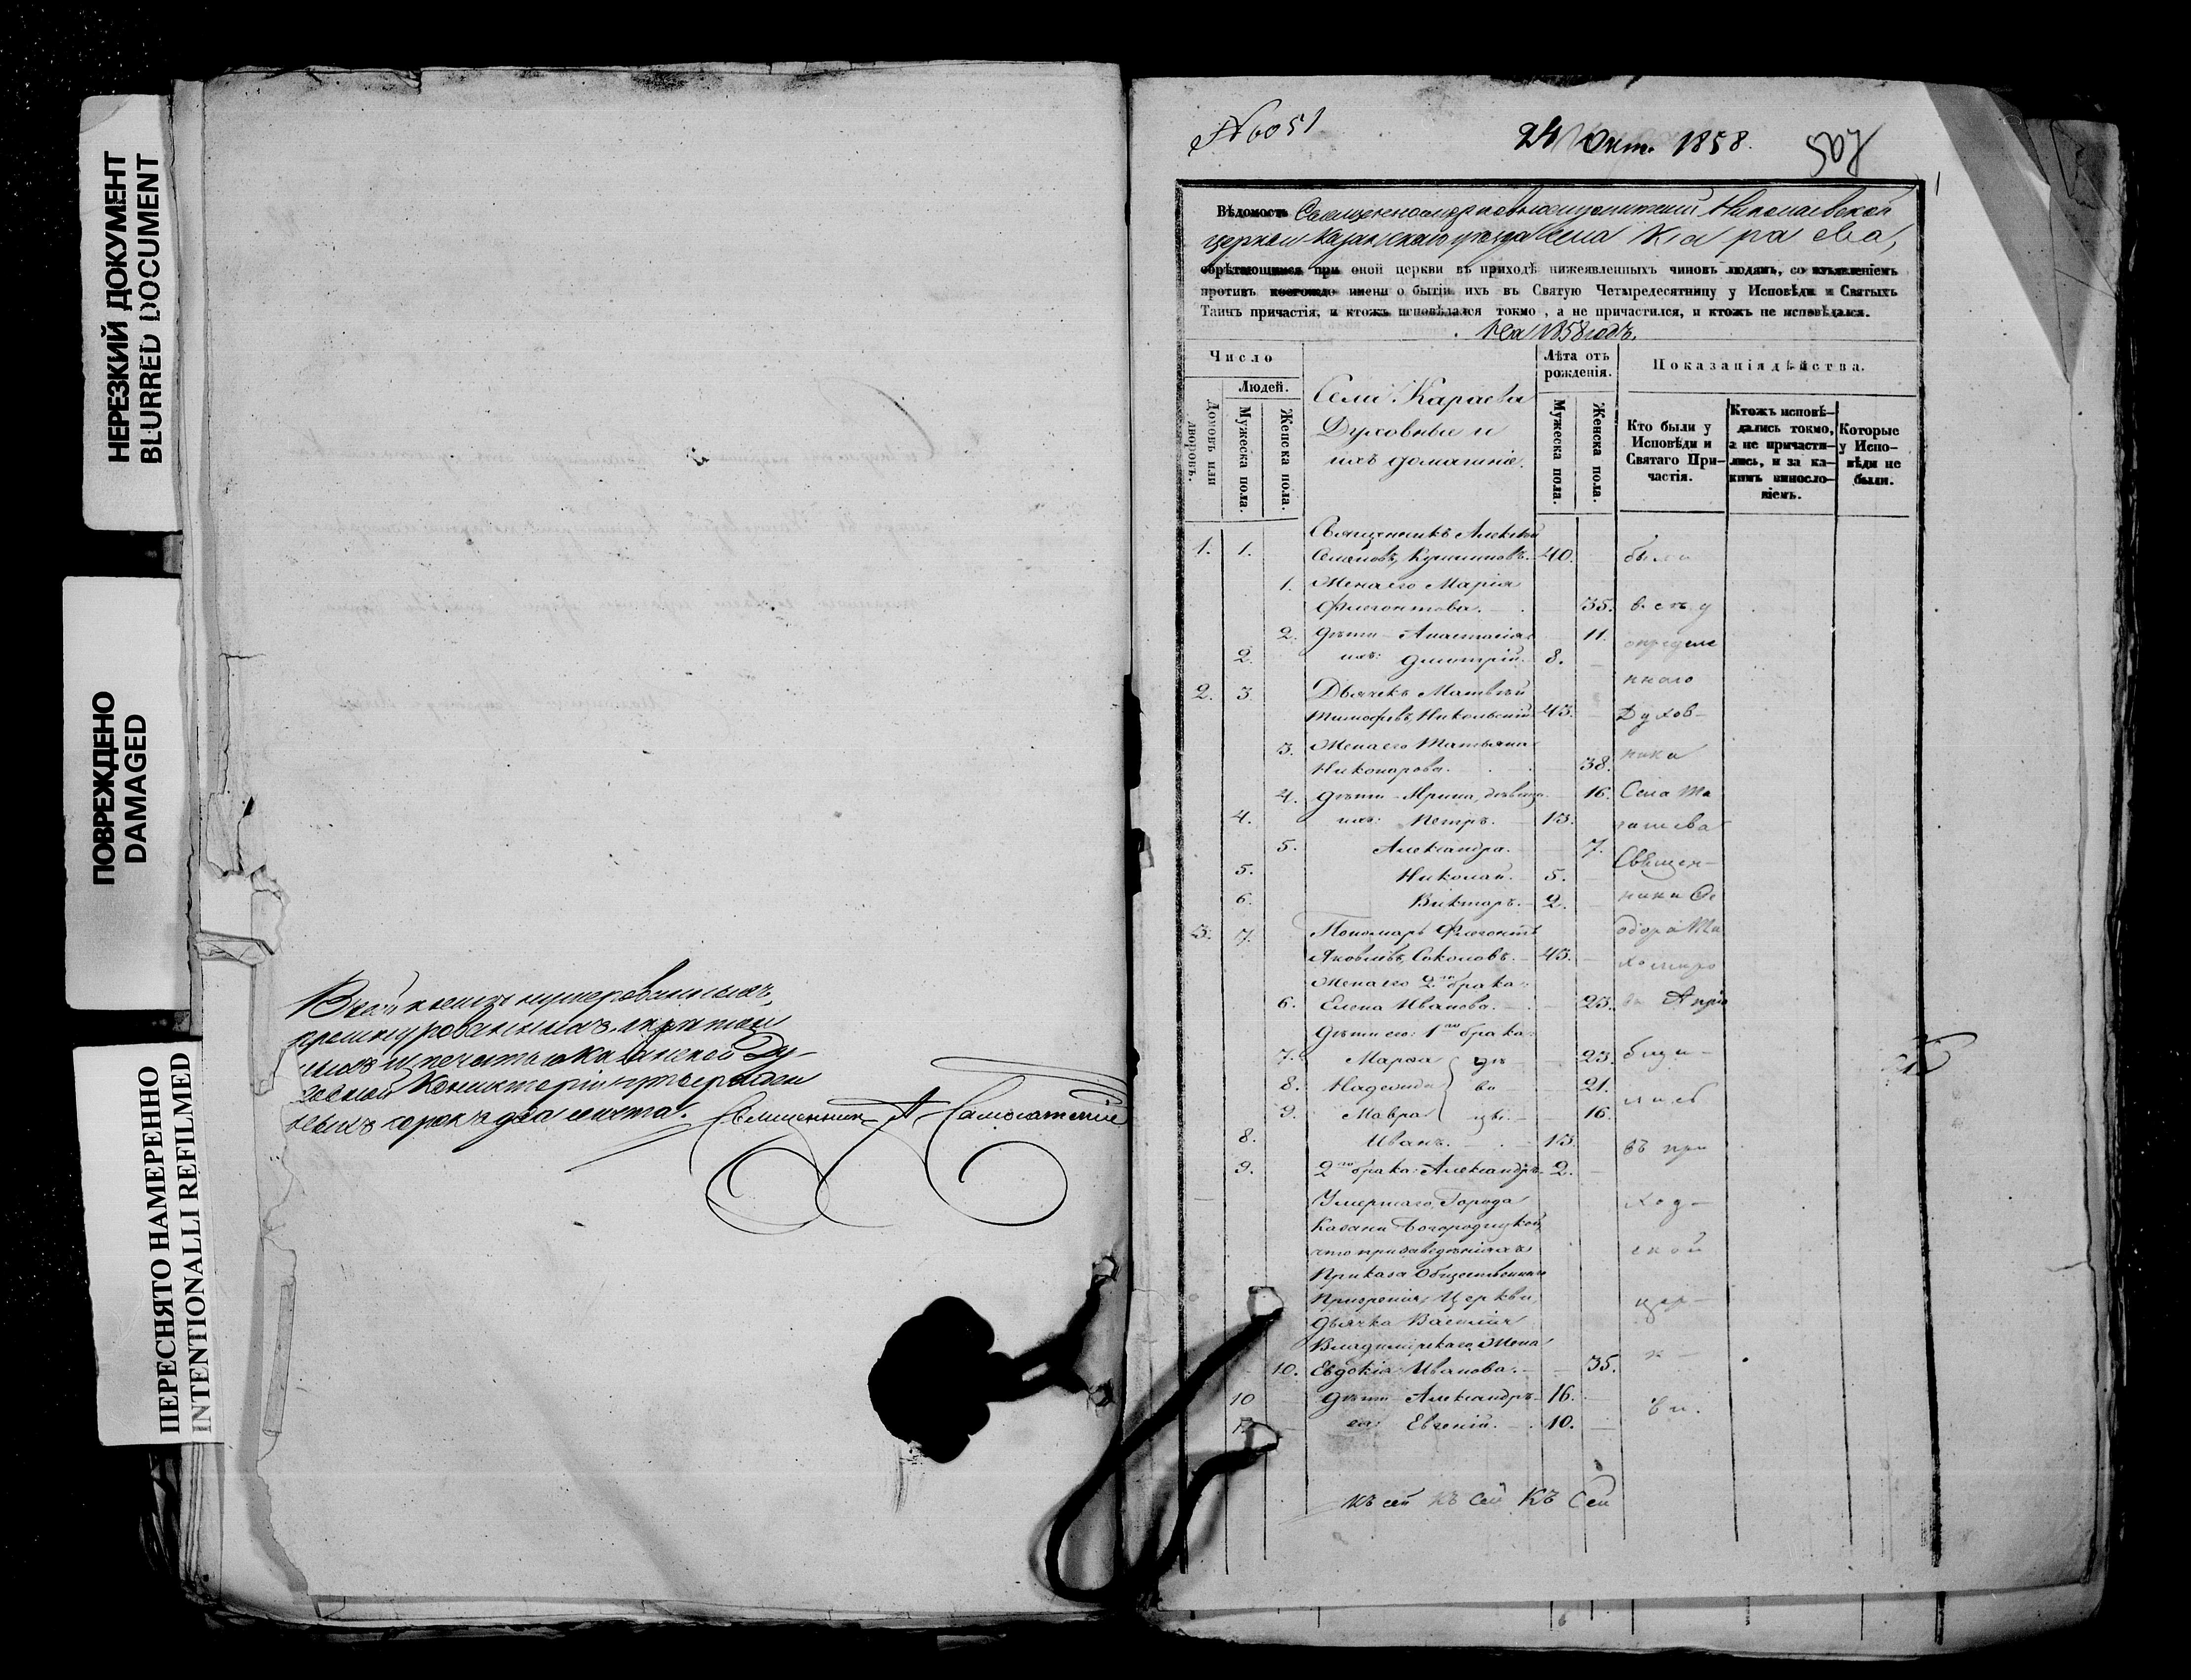 НЕРЕЗКИЙ ДОКУМЕНТ
BLURRED DOCUMENT
ПОВРЕЖДЕНО
DAMAGED
ПЕРЕСНЯТО НАМЕРЕННО
INTENTIONALLI REFILMED
В сей книгѣ нумерованныхъ,
прошнурованныхъ
печатью Казанской Ду-
ховной Консисторіи
сорокъ два листа. Священникъ А.
№ 6051
24 Окт. 1858.
507
1
Вѣдомость Николаевской
церкви Казанскаго уѣзда села Караева,
обрѣтающимся при оной церкви въ приходѣ нижеявленныхъ чиновъ людямъ, со изъявленіемъ
противъ коегождо имени о бытіи ихъ въ Святую Четыредесятницу у Исповѣди и Святыхъ
Таинъ причастія, и ктожъ исповѣдался токмо, а не причастился, и ктожъ не исповѣдался.
На 1858 годъ.
Число
Людей.
Домовъ или дворовъ.
Мужеска пола.
Женска пола.
Села Караева
Духовные и
ихъ домашніе.
Лѣта отъ рожденія.
Мужеска пола.
Женска пола.
Показанія дѣйства.
Кто были у Исповѣди и Святаго Причастія.
Ктожъ исповѣдались токмо, а не причастились, и за какимъ винословіемъ.
Которые у Исповѣди не были.
1. 1. Священникъ Алексѣй
40. были
1. Жена его Марія
Флегонтова. 35. въ сѣ у
2. Дѣти Анастасія 11.
2. ихъ: Димитрій. 8. опредѣле
ннаго
2. 3. Дьячекъ Матвѣй
Тимофѣевъ Никольскій 43. Духов-
3. Жена его Татьяна
Никонорова. 38. ника
4. Дѣти Ирина, дѣвица 16. Села Та
4. ихъ: Петръ. 13. шева
5. Александра. 7. Священ-
5. Николай. 5.
6. Викторъ. 2. ника Ѳе
3. 7. Пономарь Флегонтъ одора Ти
Яковлевъ Соколовъ. 43. хомиро
Жена его 2го брака:
6. Елена Иванова. 23. ва А при
Дѣти его: 1го брака:
7. Марѳа дѣ 23. бщи-
8. Надежда ви 21. лись
9. Мавра цы. 16.
8. Иванъ. 13. въ при
9. 2го брака: Александръ. 2.
Умершаго Города ход-
Казани Богородицкой,
что при заведеніяхъ ской
Приказа Общественнаго
Призренія, Церкви, цер-
дьячка Василія
Владимірскаго Жена к-
10. Евдокія Иванова. 35.
10 Дѣти Александръ 16. ви.
ея: Евгеній. 10.
Къ сей Къ сей Къ Сей